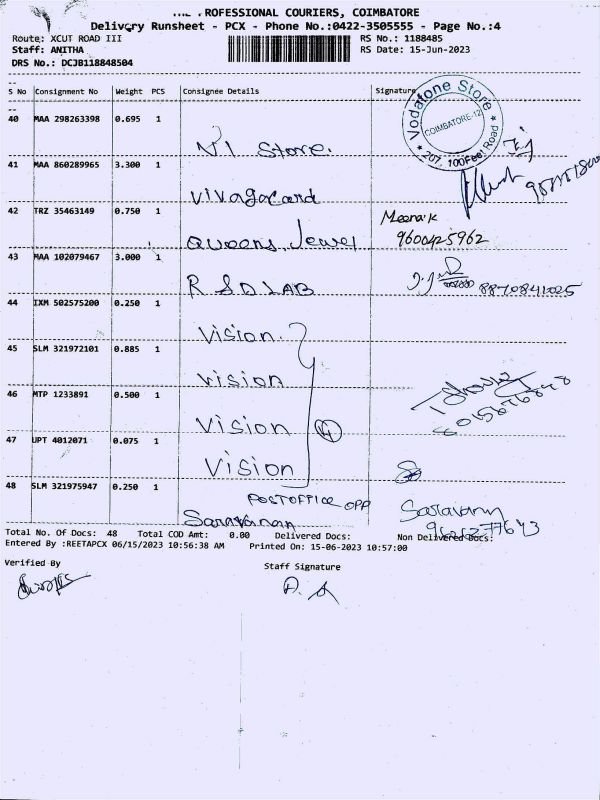 ROFESSIONAL COURIERS, COIMBATORE
Delivery Runsheet - PCX - Phone No.:0422-3505555 - Page No.:4
Route: XCUT ROAD III
RS No.: 1188485
Staff: ANITHA
RS Date: 15-Jun-2023
DRS No.: DCJB118848504
S No Consignment No Weight PCS Consignee Details Signature
Vodafone Store
COIMBATORE-12
★ 207, 100Feet Road ★
40 MAA 298263398 0.695 1
N1 Store.
41 MAA 860289965 3.300 1
Vivagocard
42 TRZ 35463149 0.750 1 Meena.k
Queens Jewel 9600425962
43 MAA 102079467 3.000 1
R S D LAB 8870841025
44 IXM 502575200 0.250 1
Vision
45 SLM 321972101 0.885 1
vision
46 MTP 1233891 0.500 1
Vision 4
47 UPT 4012071 0.075 1
Vision
48 SLM 321975947 0.250 1
POSTOFFICE OPP
Saravanan
Total No. Of Docs: 48 Total COD Amt: 0.00 Delivered Docs: Non Delivered Docs:
Entered By :REETAPCX 06/15/2023 10:56:38 AM Printed On: 15-06-2023 10:57:00
Verified By
Staff Signature